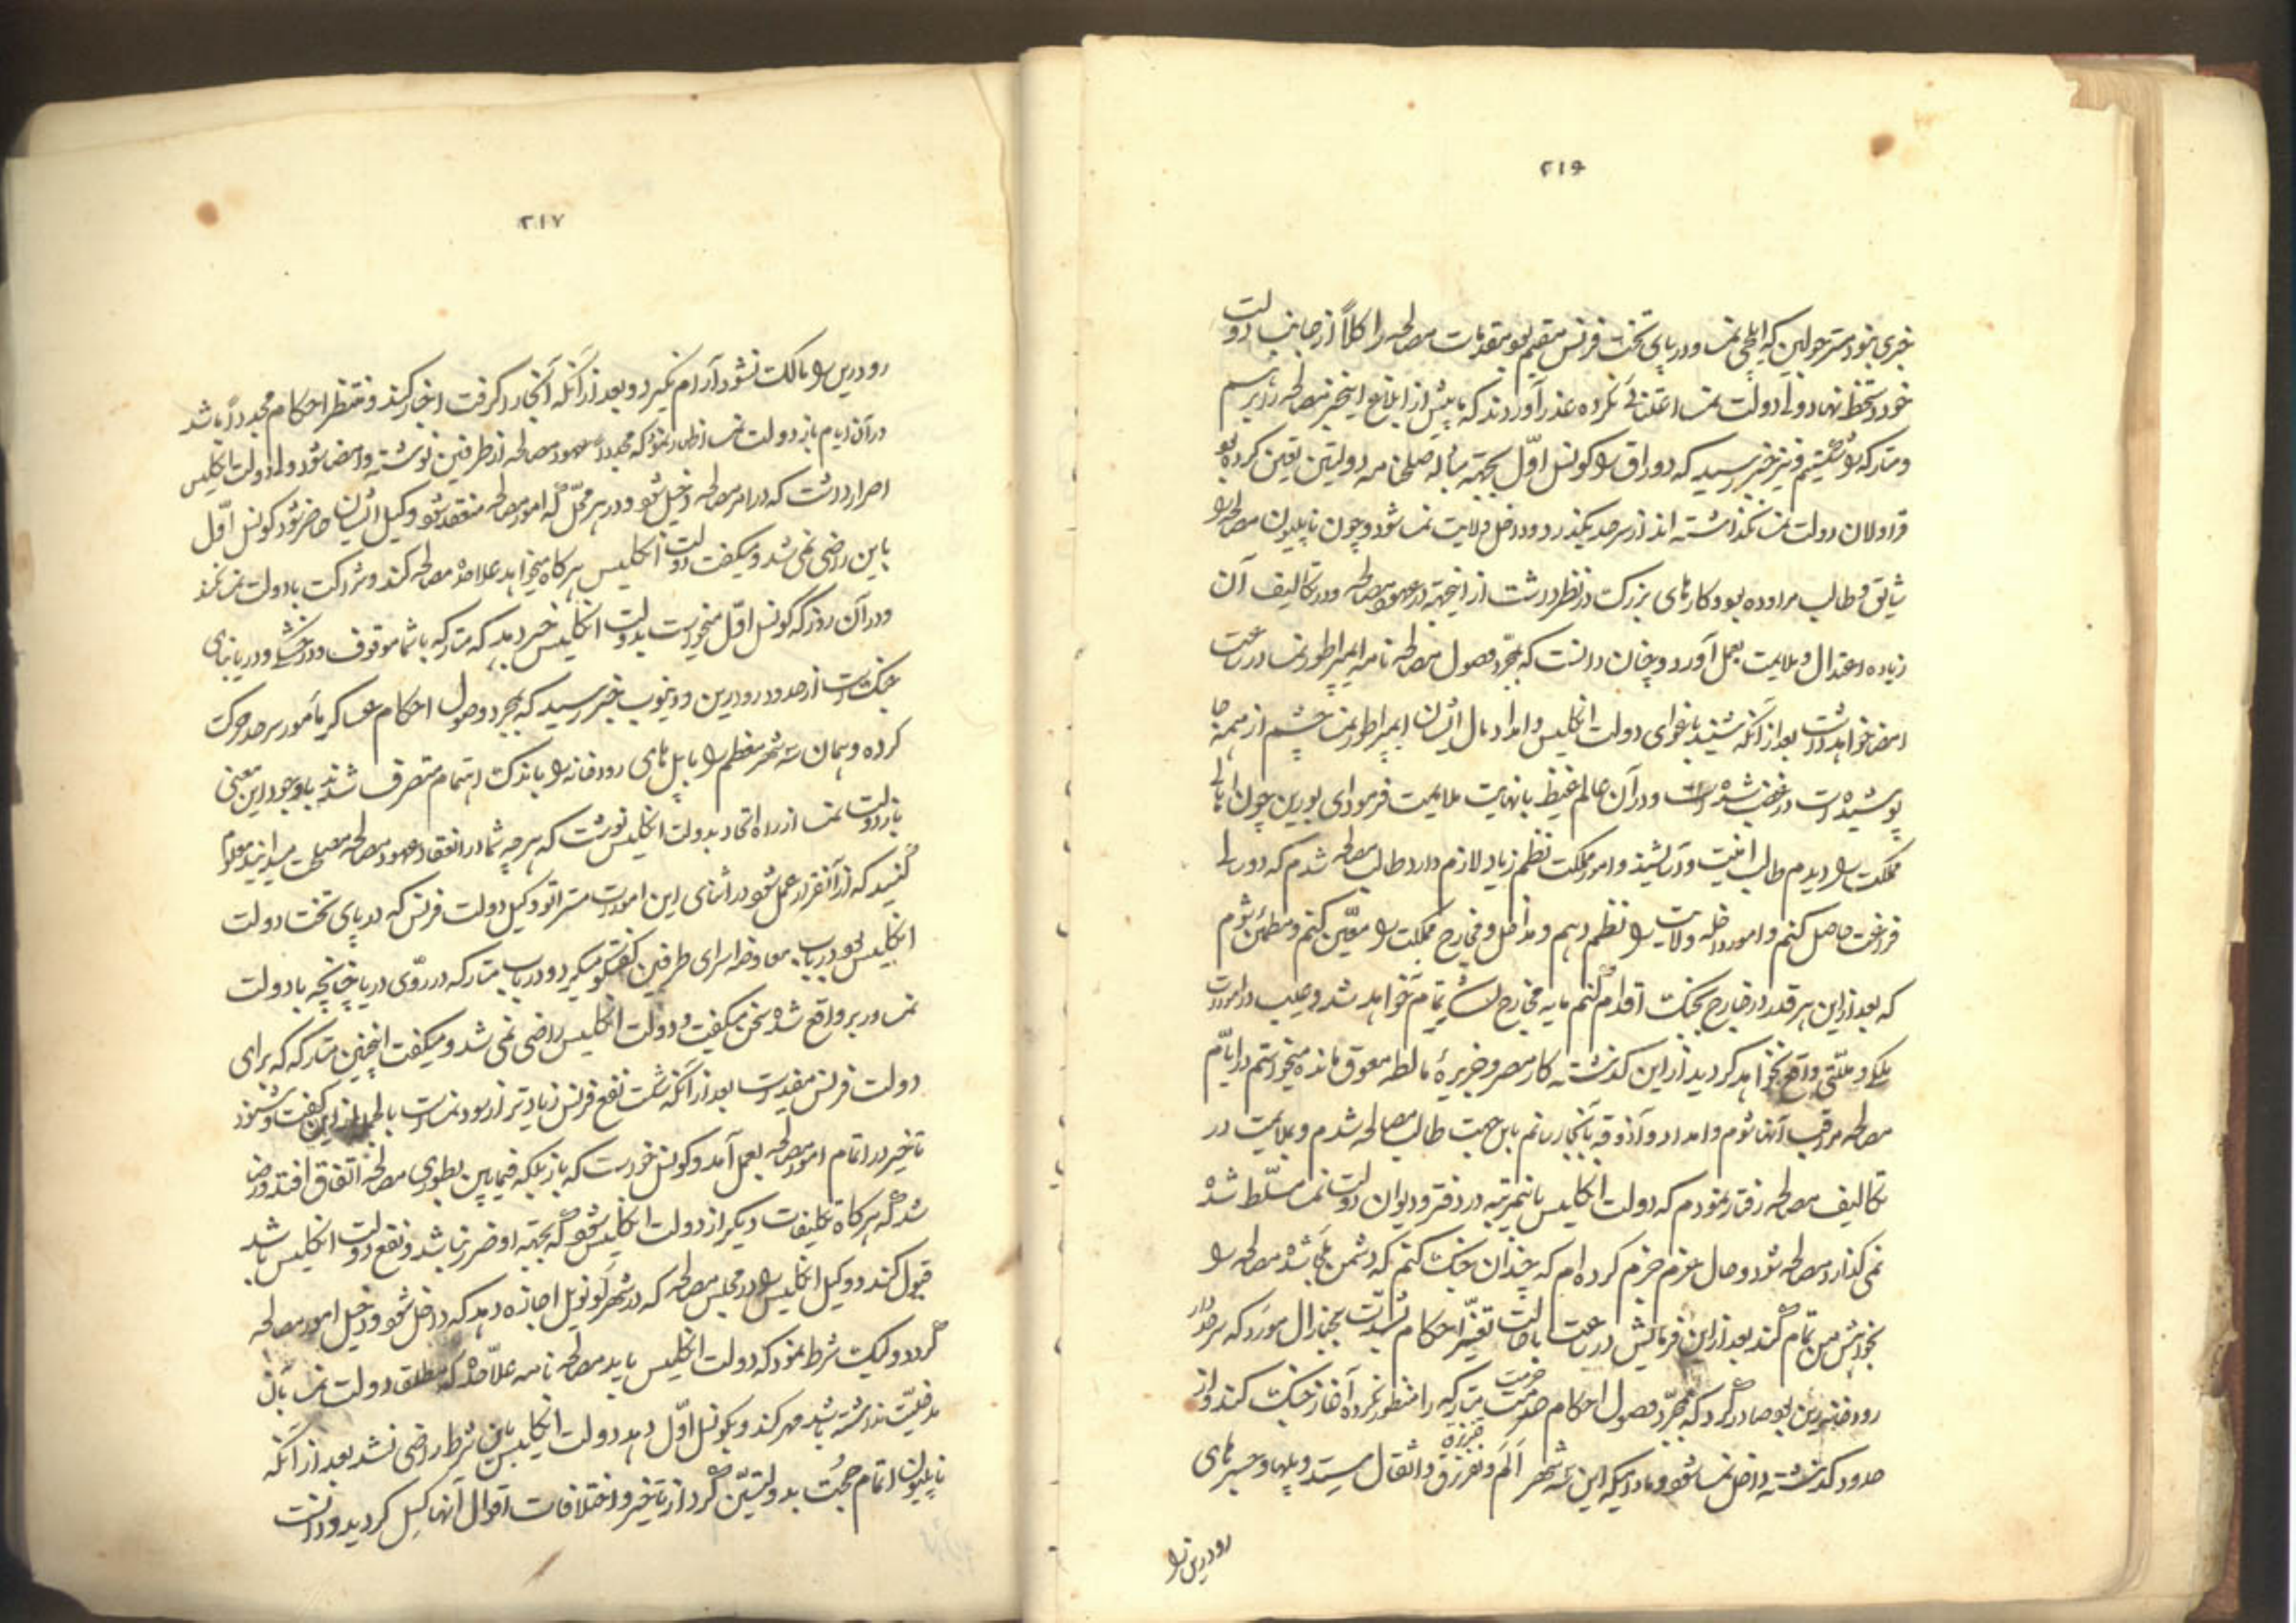 ۲۱۶
خبری بنود مستر جولین که ایلچی نمسا و در پای تخت فرنس مقیم بود مقدمات مصالحه را کلاً از جانب دولت
خود دستخط نهاد ولی دولت نمسا اعتنائی نکرده عذر آوردند که ما پیش از ابلاغ این خبر مصالحه را بر سم
و متارکه را شکستیم و نیز خبر رسید که دوراق را کونسل اوّل بجهته مبادله صلحنامه دولتین تعین کرده بود
قراولان دولت نمسا نگذاشته اند از سرحد بگذرد و داخل ولایت نمسا شود و چون ناپلیون مصالحه را
شایق و طالب مراوده بود و کارهای بزرک در نظر داشت از اینجهة در عهود مصالحه و در تکالیف آن
زیاده اعتدال و ملایمت بعمل آورد و چنان دانست که بمجرد وصول مصالحه نامه ایمپراطور نمسا در ساعت
امضا خواهد داشت بعد از آنکه شنید باغوای دولت انکلیس و امداد مال ایشان ایمپراطور نمسا چشم از همه جا
پوشیده است در غضب شده است و در آن عالم غیظ با نهایت ملایمت فرمود ای بورین چون اهالی
مملکت را دیدم طالب امنیت و آسایشند و امور مملکت نظم زیاد لازم دارد طالب مصالحه شدم که دو سالی
فراغت حاصل کنم و امور داخله ولایت را نظم دهم و مداخل و مخارج مملکت را معیّن کنم و مطمئن شوم
که بعد از این هر قدر در خارج بجنک اقدام کنم مایه مخارج لشکر تمام نخواهد شد و عیب در امورات
ملکی و ملّتی واقع نخواهد کردید از این کذشته کار مصر و جزیرهٔ مالطه معوق مانده میخواستم در ایّام
مصالحه مراقب آنها شوم و امداد و آذوقه بآنجا رسانم باین جهت طالب مصالحه شدم و بملایمت در
تکالیف مصالحه رفتار نمودم که دولت انکلیس باینمرتبه در دفتر و دیوان دولت نمسا مسلّط شده
نمی کذارد مصالحه شود و حال عزم جزم کرده ام که چندان جنک کنم که دشمن ملجأ شده مصالحه را
بخواهش من تمام کند بعد از این فرمایش در ساعت با حالت تغیّر احکام بشدّت بجنرال مورد که سردار
رودخانه رین بود صادر کرد که بمجرّد وصول احکام حرمت متارکه را منظور نکرده آغاز جنک کند و از
حدود کذشته داخل نمسا شود و مادامیکه این سه شهر اَلم و نفرزق و انقال مستد و پلها و جسرهای
رود رین را
۲۱۷
رود رین را مالک نشود آرام نکیرد و بعد از آنکه آنجا را کرفت اخبار کند و منتظر احکام مجدداً باشد
در آن ایام باز دولت نمسا اظهار نمود که مجدداً عهود مصالحه از طرفین نوشته و امضا شود ولی دولت انکلیس
اصرار داشت که در امر مصالحه دخیل شود و در هر محلّ که امور مصالحه منعقد شود وکیل ایشان حاضر شود کونسل اوّل
باین راضی نمی شد و میکفت دولت انکلیس هر کاه میخواهد علاحده مصالحه کند و شراکت با دولت نمسا نکند
و در آن روز که کونسل اوّل میخواست بدولت انکلیس خبر دهد که متارکه با شما موقوف و در خشکی و دریا بنای
جنک است از حدود رود رین و دینوب خبر رسید که بمجرد وصول احکام عساکر مأمور سرحد حرکت
کرده و همان سه شهر معظم را با پل های رودخانه را باندک اهتمام متصرف شدند با وجود این معنی
باز دولت نمسا از راه اتحاد بدولت انکلیس نوشت که هر چه شما در انعقاد عهود مصالحه مصلحت میدانید معلوم
کنید که از آنقرار عمل شود در اثنای این امورات مستر اتو وکیل دولت فرنس که در پای تخت دولت
انکلیس بود در باب معاوضه اسرای طرفین کفتکو میکرد و در باب متارکه در روی دریا چنانچه با دولت
نمسا در بر واقع شده سخن میکفت و دولت انکلیس راضی نمی شد و میکفت اینچنین متارکه که برای
دولت فرنس مفید است بعد از آنکه شکست نفع فرنس زیادتر از سود نمسا است بالجمله از این کفت و شنود
تأخیر در اتمام امور مصالحه بعمل آمد و کونسل خواست که باز بلکه فیمابین بطوری مصالحه اتفاق افتد و راضی
شد که هر کاه تکلیفات دیکر از دولت انکلیس شود که بجهته او ضرر نباشد و نفع دولت انکلیس باشد
قبول کند و وکیل انکلیس را در مجلس مصالحه که در شهر لونویل اجازه دهد که داخل شود و دخیل امور مصالحه
کردد و لیک شرط نمود که دولت انکلیس باید مصالحه نامه علاحده که مطلق دولت نمسا بآن
مدخلیّت نداشته باشد مهر کند و بکونسل اوّل دهد دولت انکلیس باین شرط راضی نشد بعد از آنکه
ناپلیون اتمام حجّت بدولتین کرد از تأخیر و اختلافات اقوال آنها کسل کردید و دانست